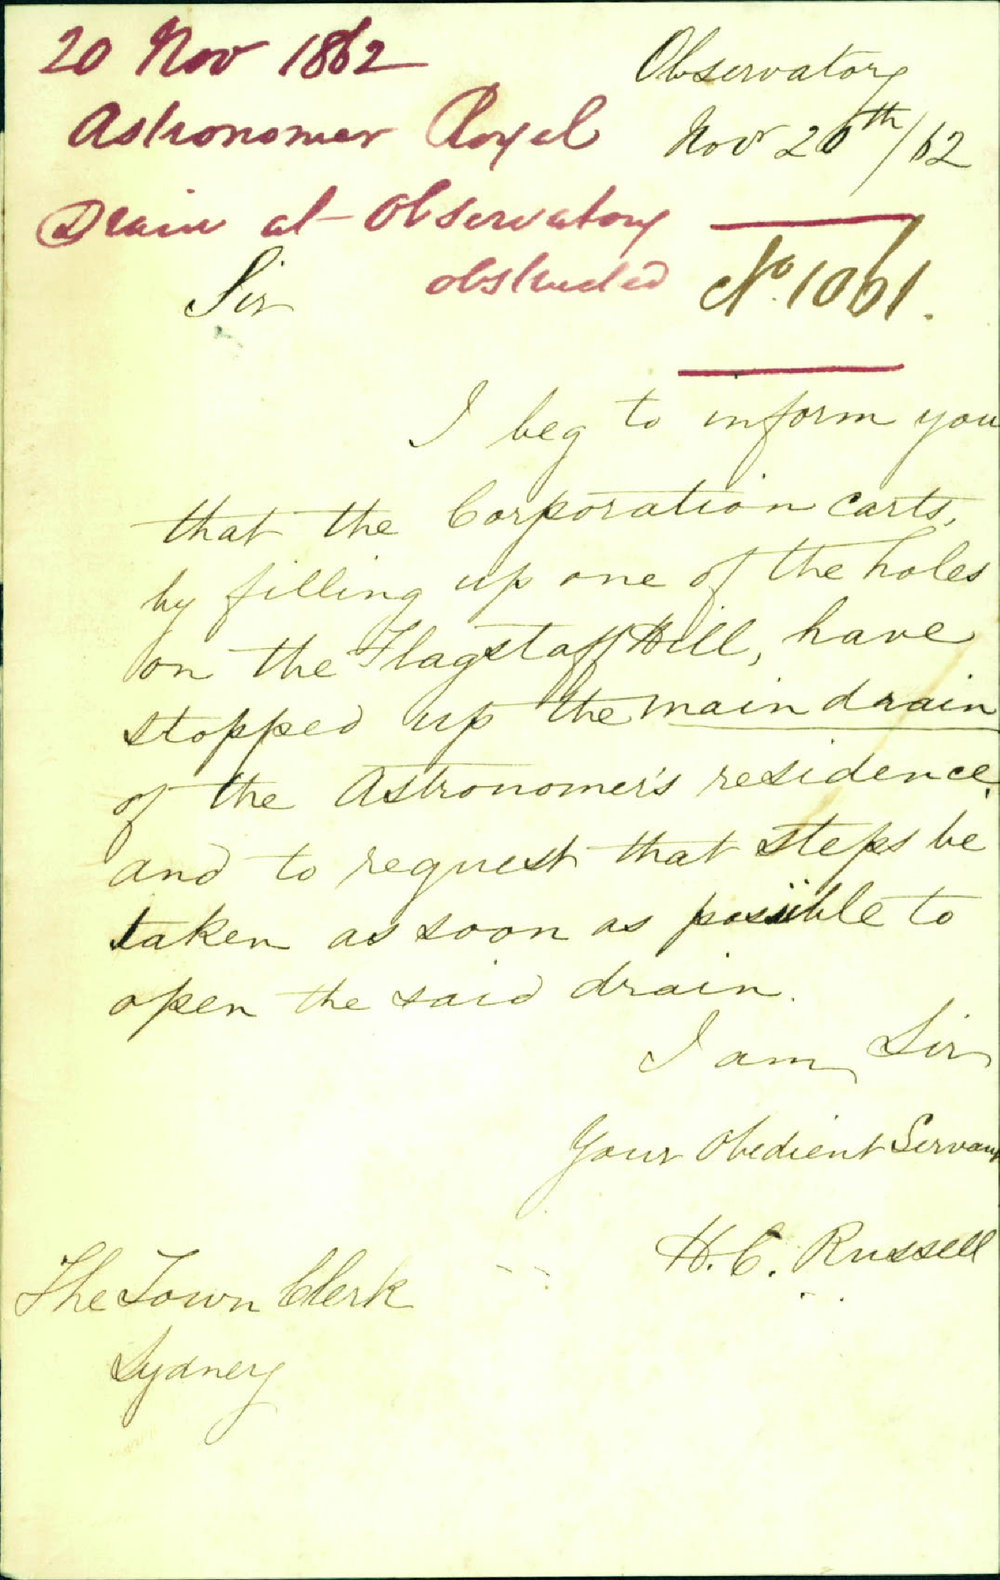 20 Nov 1862
Astronomer Royal
Drain at Observatory
obstructed
Observatory
Nov 20th/62
No. 1061.
Sir
I beg to inform you
that the Corporation carts,
by filling up one of the holes
on the Flagstaff Hill, have
stopped up the main drain
of the Astronomer's residence,
and to request that steps be
taken as soon as possible to
open the said drain.
I am, Sir
Your Obedient Servant
H.C. Russell
The Town Clerk
Sydney